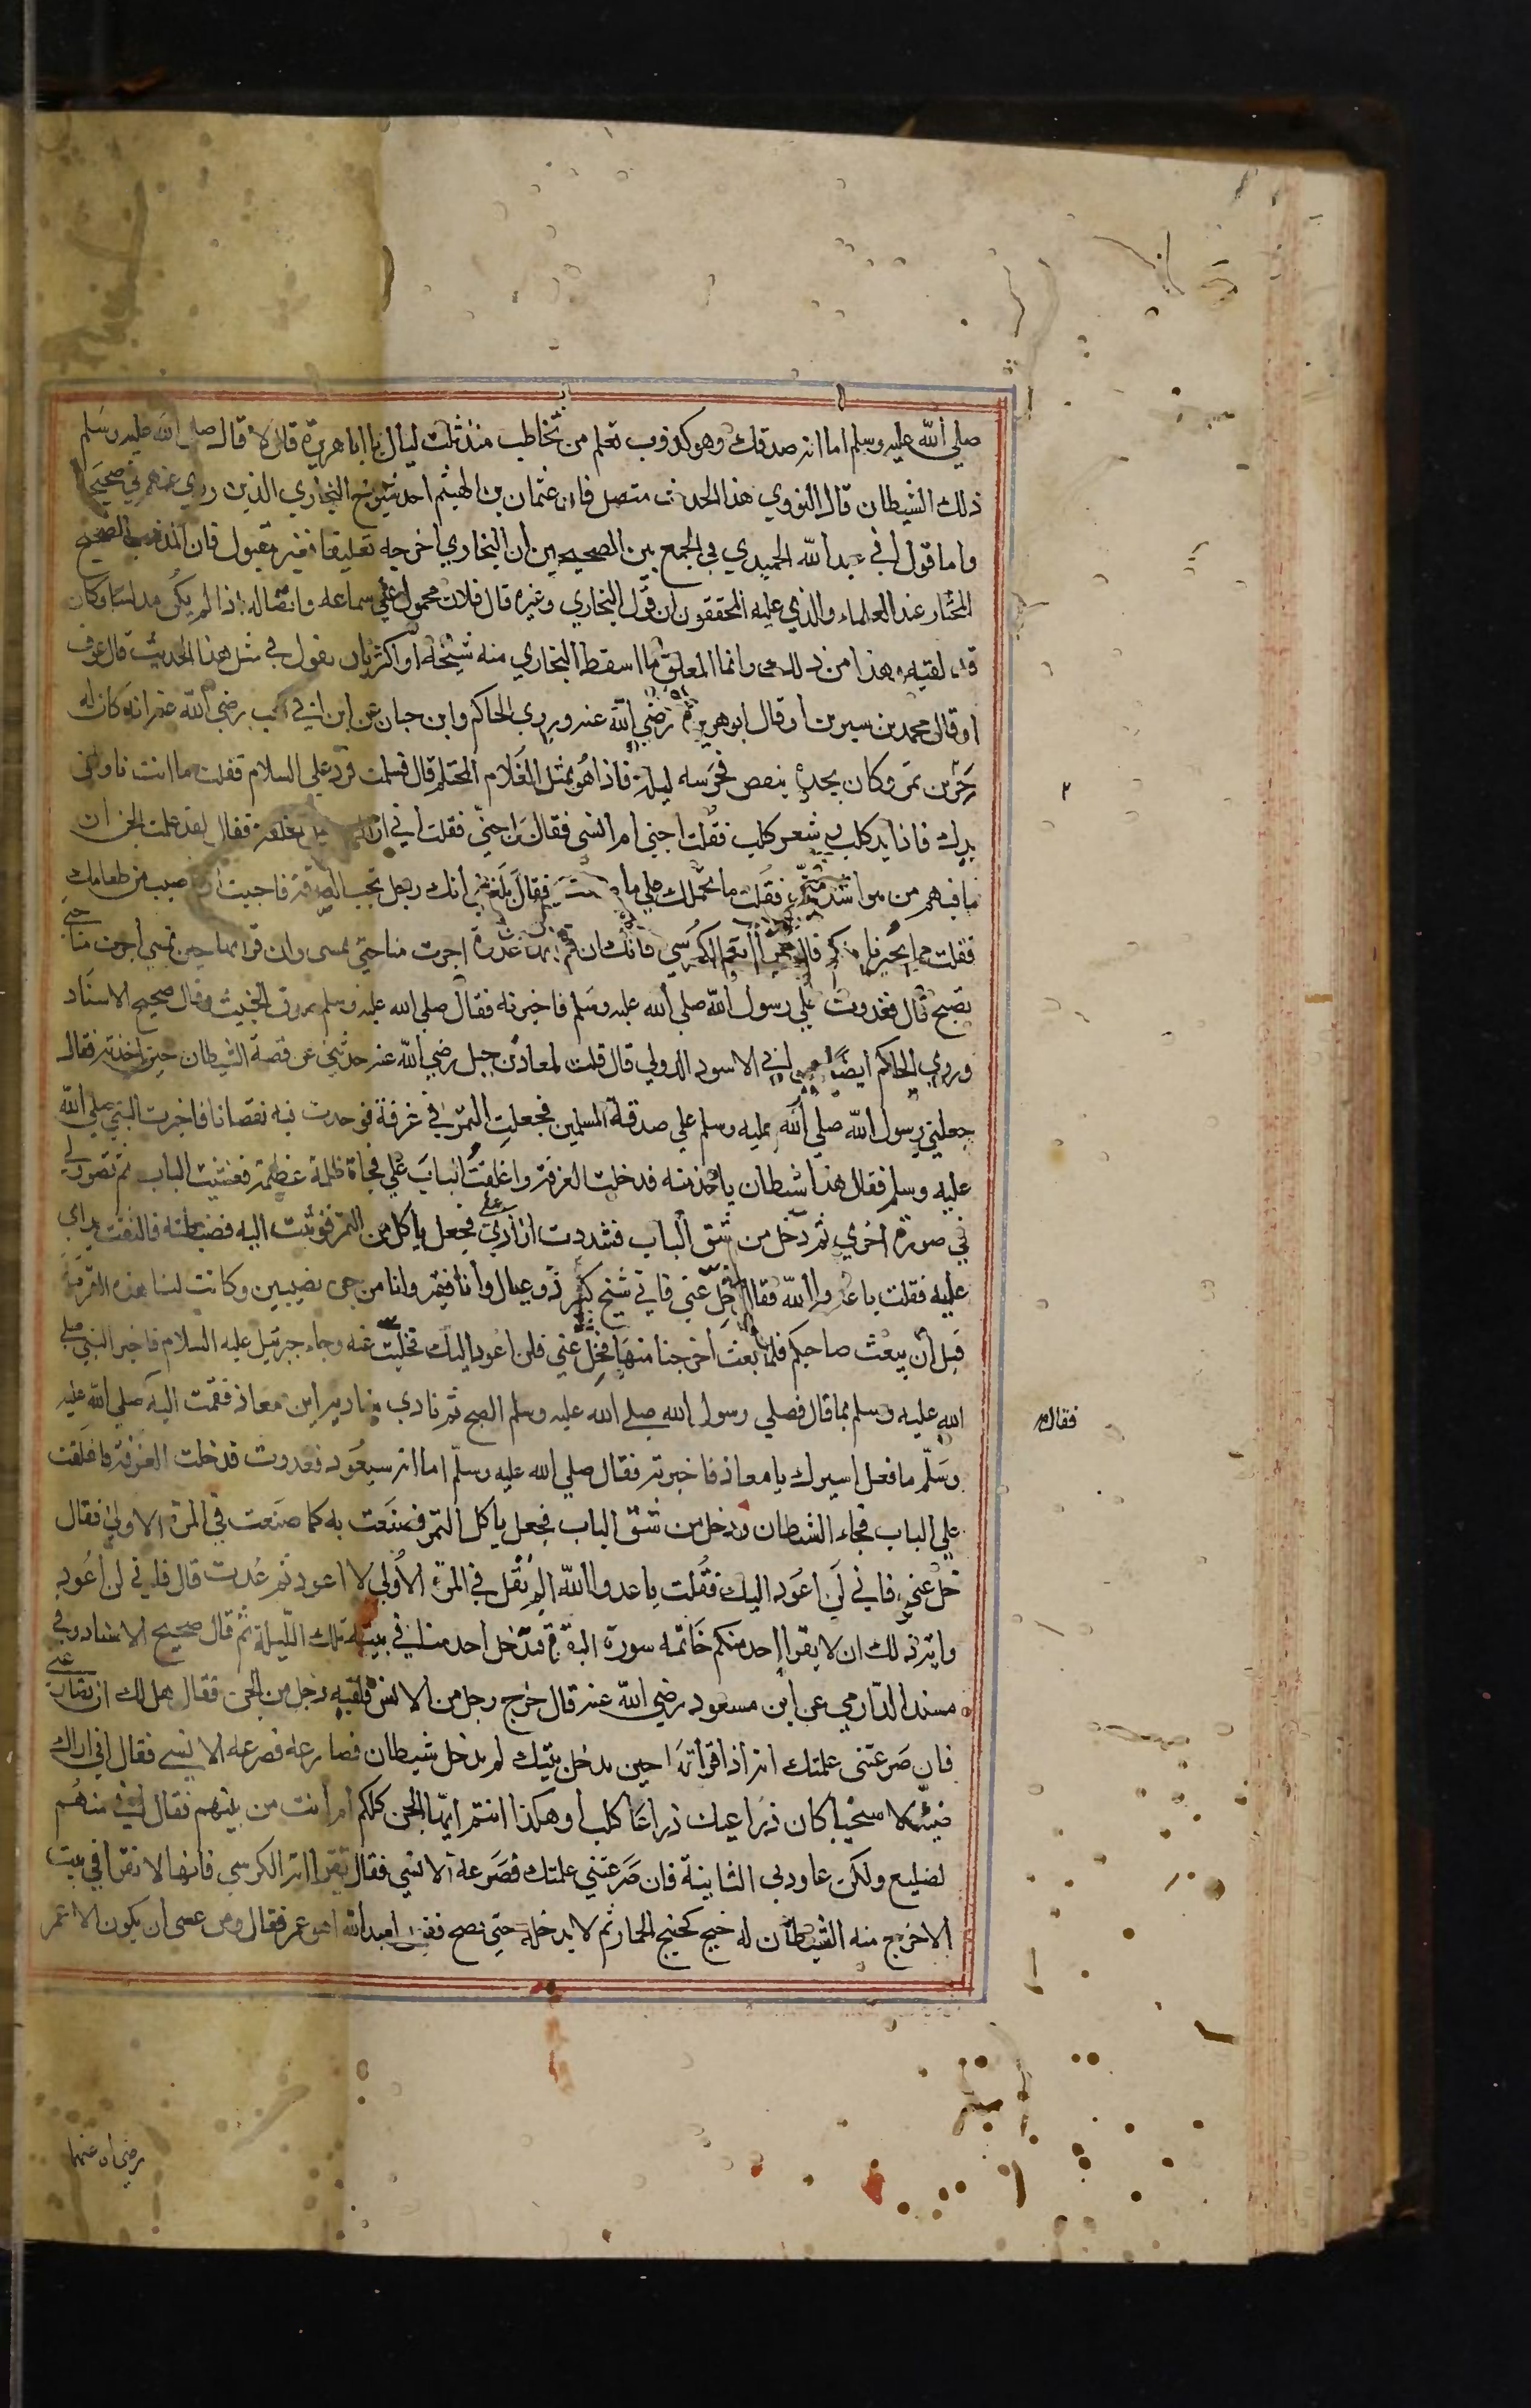 صلي الله عليه وسلم اما انه صدقك وهو كذوب تعلم من تخاطب منذ ثلث ليال يا ابا هريرة قال لا قال صلي الله عليه وسلم
ذلك الشيطان قال النووي هذا الحديث متصل فان عثمان بن الهيثم احد شيوخ البخاري الذين روي عنهم في صحيحه
واما قول ابي عبد الله الحميدي في الجمع بين الصحيحين ان البخاري اخرجه تعليقا فغير مقبول فان المذهب الصحيح
المختار عند العلماء والذي عليه المحققون ان قول البخاري وغيره قال فلان محمول علي سماعه واتصاله اذا لم يكن مدلسا وكان
قد لقيه وهذا من ذلك وانما المعلق ما اسقط البخاري منه شيخه او اكثر بان يقول في مثل هذا الحديث قال عوف
او قال محمد بن سيرين او قال ابو هريرة رضي الله عنه وروي الحاكم وابن حبان عن ابن ابي كعب رضي الله عنه انه كان له
جرن تمر وكان يجده ينقص فحرسه ليلة فاذا هو بمثل الغلام المحتلم قال فسلمت فرد علي السلام فقلت ما انت ناولني
يدك فاذا يد كلب وشعر كلب فقلت اجني ام انسي فقال بل جني فقلت اني اراك خلقة فقال لقد علمت الجن ان
ما فيهم من هو اشد مني فقلت ما حملك علي ما صنعت فقال بلغني انك رجل تحب الصدقة فاحببت ان اصيب من طعامك
فقلت فما يجيرنا منكم قال آية الكرسي فانك ان غدوة اجرت منا حتي تمسي وان قراتها حين تمسي اجرت منا حتي
تصبح قال فغدوت علي رسول الله صلي الله عليه وسلم فاخبرته فقال صلي الله عليه وسلم صدق الخبيث وقال صحيح الاسناد
وروي الحاكم ايضا عن ابي الاسود الدولي قال قلت لمعاذ بن جبل رضي الله عنه حدثني عن قصة الشيطان حين اخذته فقال
جعلني رسول الله صلي الله عليه وسلم علي صدقة المسلمين فجعلت التمر في غرفة فوجدت فيه نقصانا فاخبرت النبي صلي الله
عليه وسلم فقال هذا شيطان ياخذ منه فدخلت الغرفة واغلقت الباب علي فجاة ظلمة عظيمة فغشيت الباب ثم تصور لي
في صورة اخري ثم دخل من شق الباب فشددت ازاري علي فجعل ياكل من التمر فوثبت اليه فضبطته فالتفت يداي
عليه فقلت يا عدو الله فقال خل عني فاني شيخ كبير ذو عيال وانا فقير وانا من جن نصيبين وكانت لنا هذه القرية
قبل ان يبعث صاحبكم فلما بعث اخرجنا منها فخل عني فلن اعود اليك فخليت عنه وجاء جبرئيل عليه السلام فاخبر النبي صلي
الله عليه وسلم بما قال فصلي رسول الله صلي الله عليه وسلم الصبح ثم نادي مناديه اين معاذ فقمت اليه صلي الله عليه
فقال
وسلم ما فعل اسيرك يا معاذ فاخبرته فقال صلي الله عليه وسلم اما انه سيعود فعدوت فدخلت الغرفة فاغلقت
علي الباب فجاء الشطان ودخل من شق الباب فجعل ياكل التمر فصنعت به كما صنعت في المرة الاولي فقال
خل عني فاني لن اعود اليك فقلت يا عدو الله الم تقل في المرة الاولي لا اعود ثم عدت قال فاني لن اعود
واية ذلك ان لا يقرا احد منكم خاتمة سورة البقرة فيدخل احد منا في بيته تلك الليلة ثم قال صحيح الاسناد وفي
مسند الدارمي عن ابن مسعود رضي الله عنه قال خرج رجل من الانس فلقيه رجل من الجن فقال هل لك ان تصارعني
فان صرعتني علمتك اية اذا قراتها حين تدخل بيتك لم يدخل شيطان فصارعه فصرعه الانسي فقال اني اراك
ضئيلا سخيا كان ذراعيك ذراعا كلب اوهكذا انتم ايها الجن كلكم ام انت من بينهم فقال اني منهم
لضليع ولكن عاودني الثانية فان صرعتني علمتك فصرعه الانسي فقال تقرا اية الكرسي فانها لا تقرا في بيت
الا خرج منه الشيطان له خبيج كخبيج الحمار ثم لا يدخله حتي يصبح فقيل لعبد الله اهو عمر فقال ومن عسي ان يكون الا عمر
رضي الله عنهما